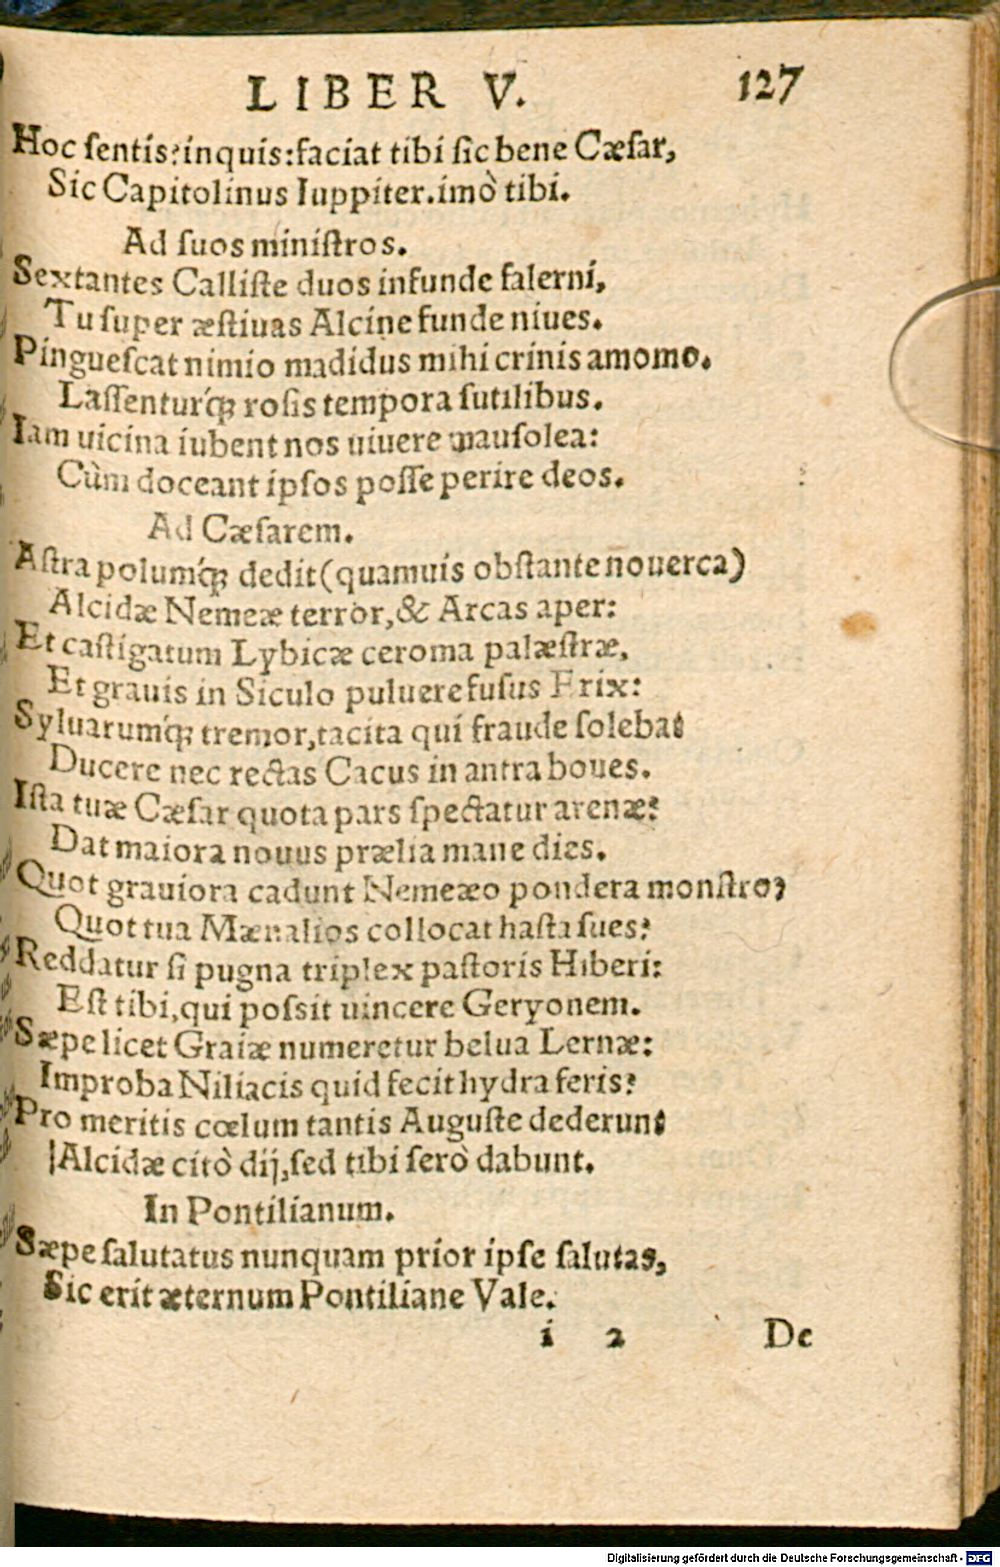 LIBER V. 127
Hoc ſentis?inquis:faciat tibi ſic bene Cæſar,
Sic Capitolinus Iuppiter.imò tibi.
Ad ſuos miniſtros.
Sextantes Calliſte duos infunde falerni,
Tu ſuper æſtiuas Alcine funde niues.
Pingueſcat nimio madidus mihi crinis amomo.
Laſſenturq́ꝫ roſis tempora ſutilibus.
Iam uicina iubent nos uiuere mauſolea:
Cùm doceant ipſos poſſe perire deos.
Ad Cæſarem.
Aſtra polumq́ꝫ dedit(quamuis obſtante nouerca)
Alcidæ Nemeæ terror,& Arcas aper:
Et caſtigatum Lybicæ ceroma palæſtræ,
Et grauis in Siculo puluere fuſus Erix:
Syluarumq́ꝫ tremor,tacita qui fraude ſolebat
Ducere nec rectas Cacus in antra boues.
Iſta tuæ Cæſar quota pars ſpectatur arenæ?
Dat maiora nouus prælia mane dies.
Quot grauiora cadunt Nemeæo pondera monſtro?
Quot tua Mænalios collocat haſta ſues?
Reddatur ſi pugna triplex paſtoris Hiberi:
Eſt tibi,qui poſsit uincere Geryonem.
Sæpe licet Graiæ numeretur belua Lernæ:
Improba Niliacis quid fecit hydra feris?
Pro meritis cœlum tantis Auguſte dederunt
Alcidæ citò dij,ſed tibi ſerò dabunt.
In Pontilianum.
Sæpe ſalutatus nunquam prior ipſe ſalutas,
Sic erit æternum Pontiliane Vale.
i 2 De
Digitalisierung gefördert durch die Deutsche Forschungsgemeinschaft - DFG